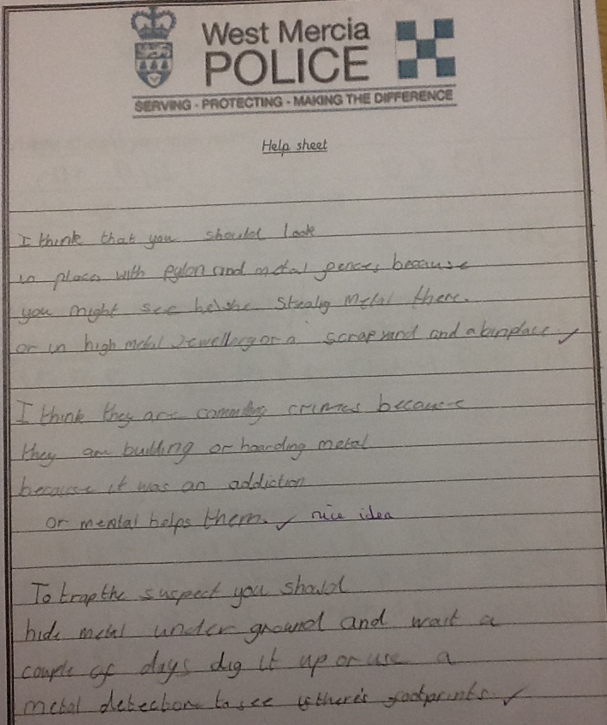 West Mercia
POLICE
SERVING - PROTECTING - MAKING THE DIFFERENCE
Help sheet
I think that you should look
in places with pylon and metal fences because
you might see he/she stealing metal there.
or in high metal Jewellery or a scrap yard and a binplace.
I think they are commiting crimes because
they are building or hoarding metal
because it was an addiction
or mental helps them. nice idea
To trap the suspect you should
hide metal under ground and wait a
couple of days dig it up or use a
metal detection to see is there's footprints.